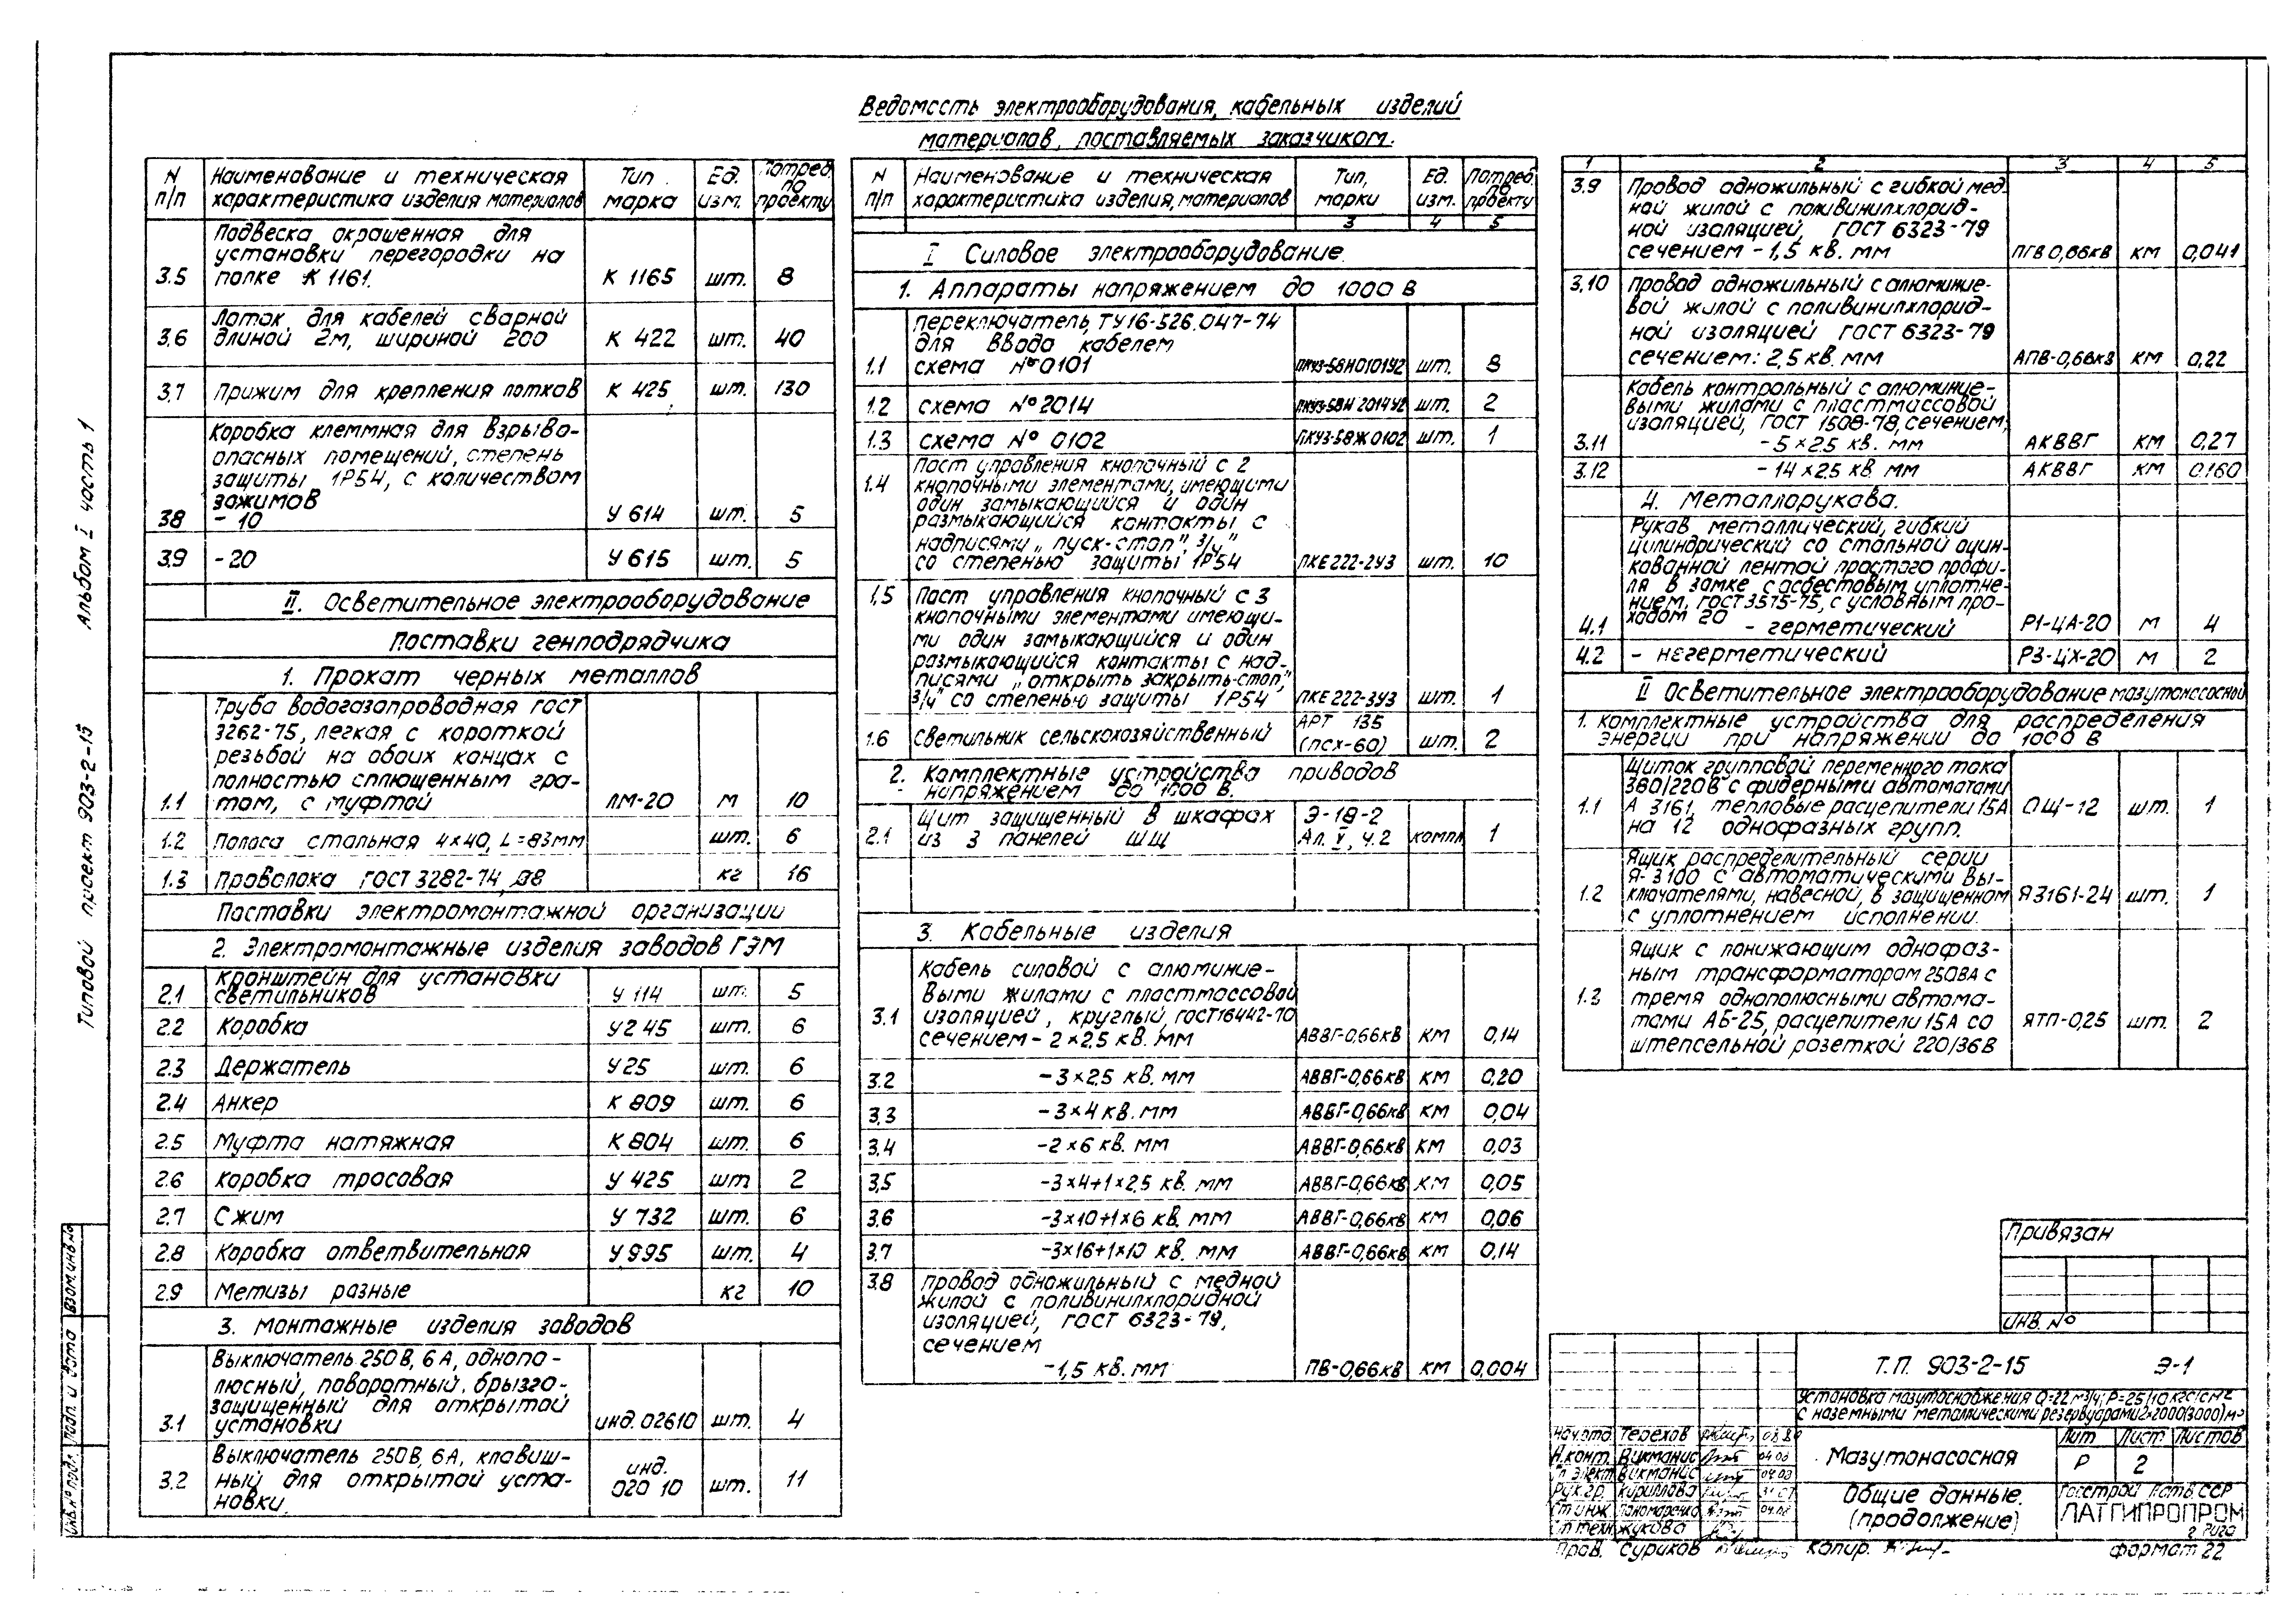 Ведомость электрооборудования, кабельных изделий
материалов, поставляемых заказчиком.
N п/п | Наименование и техническая характеристика изделия материалов | Тип марка | Ед. изм. | Потреб. по проекту
Подвеска окрашенная для
установки перегородки на
3.5 полке К 1161. К 1165 шт. 8
Лоток для кабелей сварной
3.6 длиной 2м, шириной 200 К 422 шт. 40
3.7 Прижим для крепления лотков К 425 шт. 130
Коробка клеммная для взрыво-
опасных помещений, степень
защиты 1Р54, с количеством
зажимов
38 - 10 У 614 шт. 5
3.9 - 20 У 615 шт. 5
II. Осветительное электрооборудование
Поставки генподрядчика
1. Прокат черных металлов
Труба водогазопроводная гост
3262-75, легкая с короткой
резьбой на обоих концах с
полностью сплющенным гра-
1.1 том, с муфтой ЛМ-20 м 10
1.2 Полоса стальная 4×40, L=83мм шт. 6
1.3 Проволока ГОСТ 3282-74, кг 16
Поставки электромонтажной организации
2. Электромонтажные изделия заводов ГЭМ
Кронштейн для установки
2.1 светильников У 114 шт. 5
2.2 Коробка У245 шт. 6
2.3 Держатель У25 шт. 6
2.4 Анкер К 809 шт. 6
2.5 Муфта натяжная К 804 шт. 6
2.6 Коробка тросовая У 425 шт 2
2.7 Сжим У 732 шт. 6
2.8 Коробка ответвительная У995 шт. 4
2.9 Метизы разные кг 10
3. Монтажные изделия заводов
Выключатель 250В, 6А, однопо-
люсный, поворотный, брызго-
защищенный для открытой
3.1 установки инд. 02610 шт. 4
Выключатель 250В, 6А, клавиш-
3.2 ный для открытой уста- инд. 020 10 шт. 11
новки.
N п/п | Наименование и техническая характеристика изделия, материалов | Тип, марки | Ед. изм. | Потреб. по проекту
3 4 5
I Силовое электрооборудование.
1. Аппараты напряжением до 1000 В
Переключатель, ТУ16-526.047-74
для ввода кабелем
1.1 схема № 0101 ПКУ3-58Н0101У2 шт. 8
1.2 схема № 2014 ПКУ3-58Н 2014У2 шт. 2
1.3 схема № 0102 ПКУ3-58Ж0102 шт. 1
Пост управления кнопочный с 2
1.4 кнопочными элементами, имеющими
один замыкающийся и один
размыкающийся контакты с
надписями „пуск-стоп", 3/4"
со степенью защиты 1Р54 ПКЕ222-2У3 шт. 10
1.5 Пост управления кнопочный с 3
кнопочными элементами имеющи-
ми один замыкающийся и один
размыкающийся контакты с над-
писями „открыть закрыть-стоп",
3/4" со степенью защиты 1Р54 ПКЕ222-3У3 шт. 1
1.6 Светильник сельскохозяйственный АРТ 135 (ПСХ-60) шт. 2
2. Комплектные устройства приводов
напряжением до 1000 В.
Щит защищенный в шкафах Э-18-2
2.1 из 3 панелей ЩЩ Ал. V, ч.2 компл 1
3. Кабельные изделия
Кабель силовой с алюминие-
выми жилами с пластмассовой
3.1 изоляцией, круглый, ГОСТ16442-70
сечением - 2×2,5 кв. мм АВВГ-0,66кВ КМ 0,14
3.2 - 3×2,5 кв. мм АВВГ-0,66кВ КМ 0,20
3.3 - 3×4 кв. мм АВВГ-0,66кВ КМ 0,04
3.4 -2×6 кв. мм АВВГ-0,66кВ КМ 0,03
3.5 -3×4+1×2,5 кв. мм АВВГ-0,66кВ КМ 0,05
3.6 -3×10+1×6 кв. мм АВВГ-0,66кВ КМ 0,06
3.7 -3×16+1×10 кв. мм АВВГ-0,66кВ КМ 0,14
3.8 провод одножильный с медной
жилой с поливинилхлоридной
изоляцией, ГОСТ 6323-79,
сечением
-1,5 кв. мм ПВ-0,66кВ КМ 0,004
1 2 3 4 5
3.9 Провод одножильный с гибкой мед-
ной жилой с поливинилхлорид-
ной изоляцией, ГОСТ 6323-79
сечением - 1,5 кв. мм ПГВ 0,66кВ КМ 0,041
3.10 Провод одножильный с алюминие-
вой жилой с поливинилхлорид-
ной изоляцией ГОСТ 6323-79
сечением: 2,5 кв. мм АПВ-0,66кВ КМ 0,22
Кабель контрольный с алюминие-
выми жилами с пластмассовой
изоляцией, ГОСТ 1508-78, сечением;
3.11 - 5×2.5 кв. мм АКВВГ КМ 0,27
3.12 - 14×2.5 кв. мм АКВВГ КМ 0,160
4. Металлорукава.
Рукав металлический, гибкий
цилиндрический со стальной оцин-
кованной лентой простого профи-
ля в замке с асбестовым уплотне-
нием, ГОСТ3575-75, с условным про-
ходом 20
4.1 - герметический Р1-ЦА-20 м 4
4.2 - негерметический Р3-ЦХ-20 м 2
II Осветительное электрооборудование мазутонасосной
1. Комплектные устройства для распределения
энергии при напряжении до 1000 В
Щиток групповой переменного тока
380/220В с фидерными автоматами
1.1 А 3161, тепловые расцепители 15А ОЩ-12 шт. 1
на 12 однофазных групп.
Ящик распределительный серии
Я-3100 с автоматическими вы-
1.2 ключателями, навесной, в защищенном Я3161-24 шт. 1
с уплотнением исполнении.
Ящик с понижающим однофаз-
ным трансформатором 250ВА с
1.3 тремя однополюсными автома-
тами АБ-25, расцепители 15А со ЯТП-0,25 шт. 2
штепсельной розеткой 220/36В
Привязан
ИНВ. №
Т.П. 903-2-15 Э-1
Установка мазутоснабжения Q=22 м3/ч; Р=25/10 кгс/см2
с наземными металлическими резервуарами 2×2000(3000) м3
Нач.отд. Терехов
Н.конт. Викманис 04.80
Гл элект. Викманис 04.80
Рук.гр. Кириллова
Ст инж. Пономаренко 04.80
Ст техн. Жукова
Мазутонасосная
Лит Лист Листов
Р 2
Общие данные.
(продолжение)
Госстрой Латв.ССР
ЛАТГИПРОПРОМ
г. Рига
Пров. Суриков Копир. Формат 22
Типовой проект 903-2-15 Альбом I часть 1
Инв.№ подл. Подп. и дата Взам.инв.№